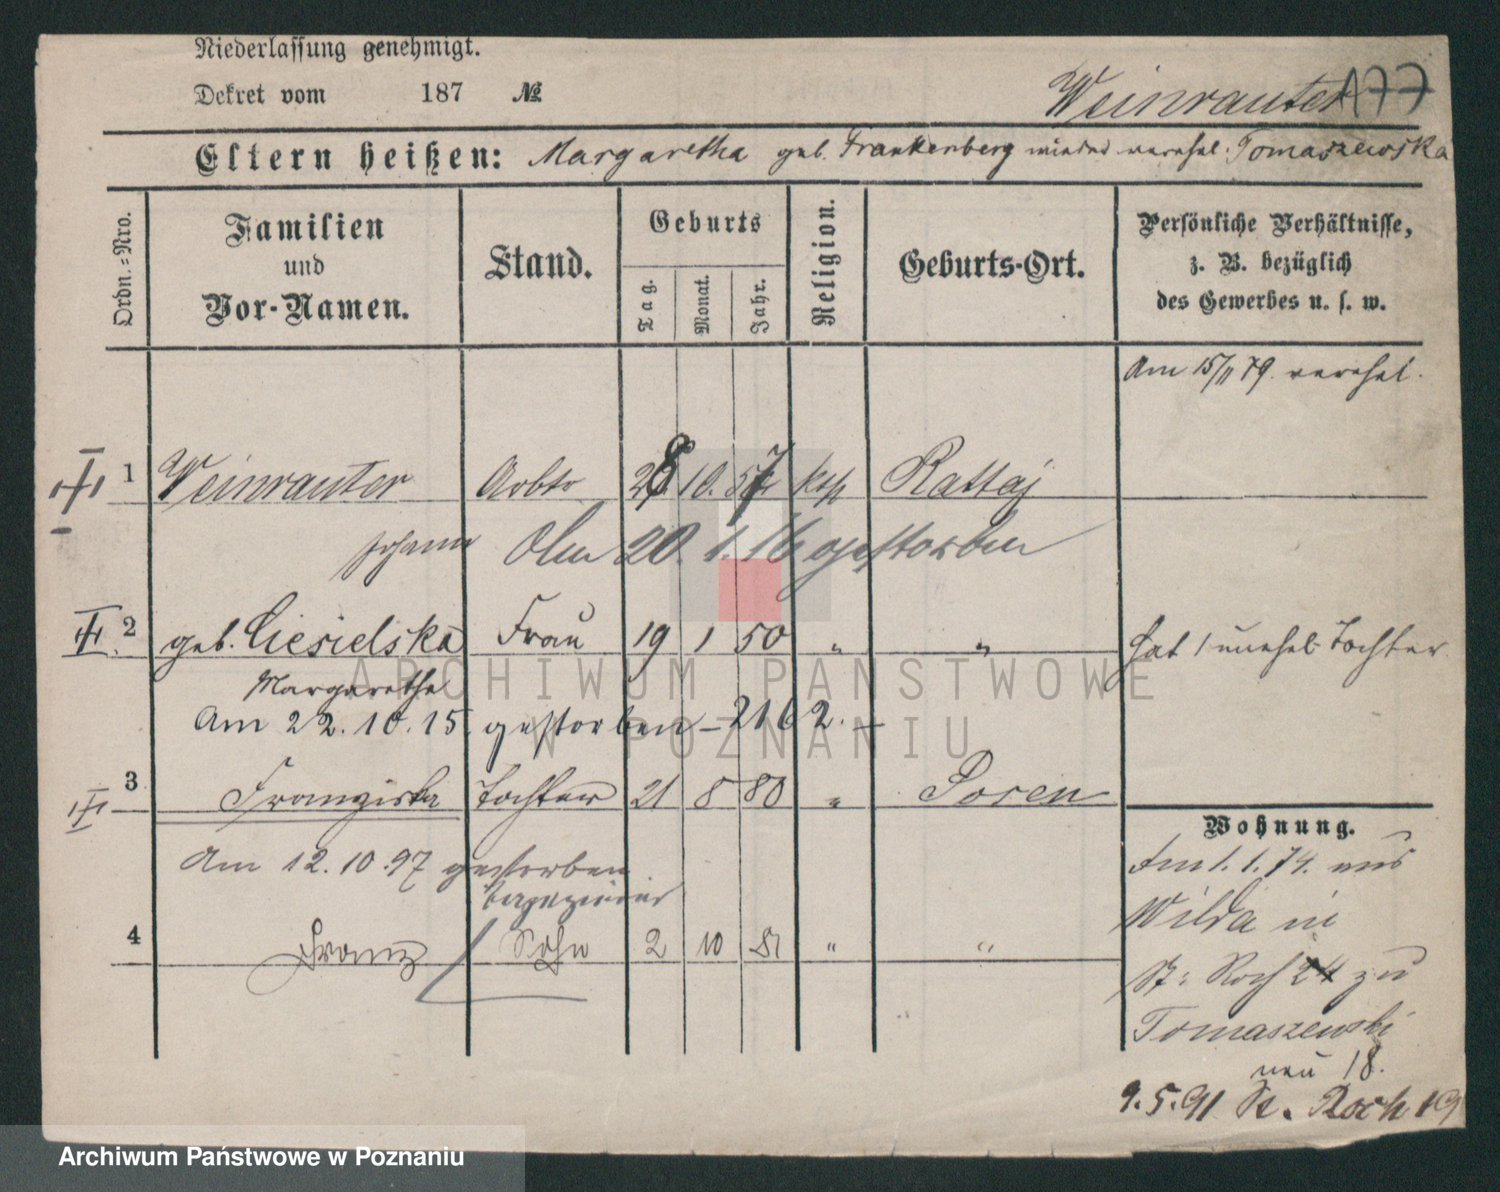 Niederlassung genehmigt.
Dekret vom 187 №
Weinrauter 177
Eltern heißen: Margaretha geb. Frankenberg wieder verehel. Tomaszewska
Ordn.=Nro.
Familien
und
Vor-Namen.
Stand.
Geburts
Tag.
Monat.
Jahr.
Religion.
Geburts-Ort.
Persönliche Verhältnisse,
z. B. bezüglich
des Gewerbes u. s. w.
Am 15/11 79. verehel.
1 Weinrauter Arbtr 28 10. 57 kth Rattaj
Johann Am 20. 1. 16 gestorben
2 geb. Ciesielska Frau 19 1 50 " " hat 1 unehel. Tochter
Margarethe
Am 22.10.15. gestorben – 2162. –
3 Franziska Tochter 21 8 80 " Posen
Am 12.10.97 gestorben
4 Franz Sohn 2 10 81 " "
Wohnung.
Am 1.1.74. aus
Wilda in
St: Roch 24 zu
Tomaszewski
neu 18.
9.5.91 St. Roch 19
ARCHIWUM PAŃSTWOWE
W POZNANIU
Archiwum Państwowe w Poznaniu